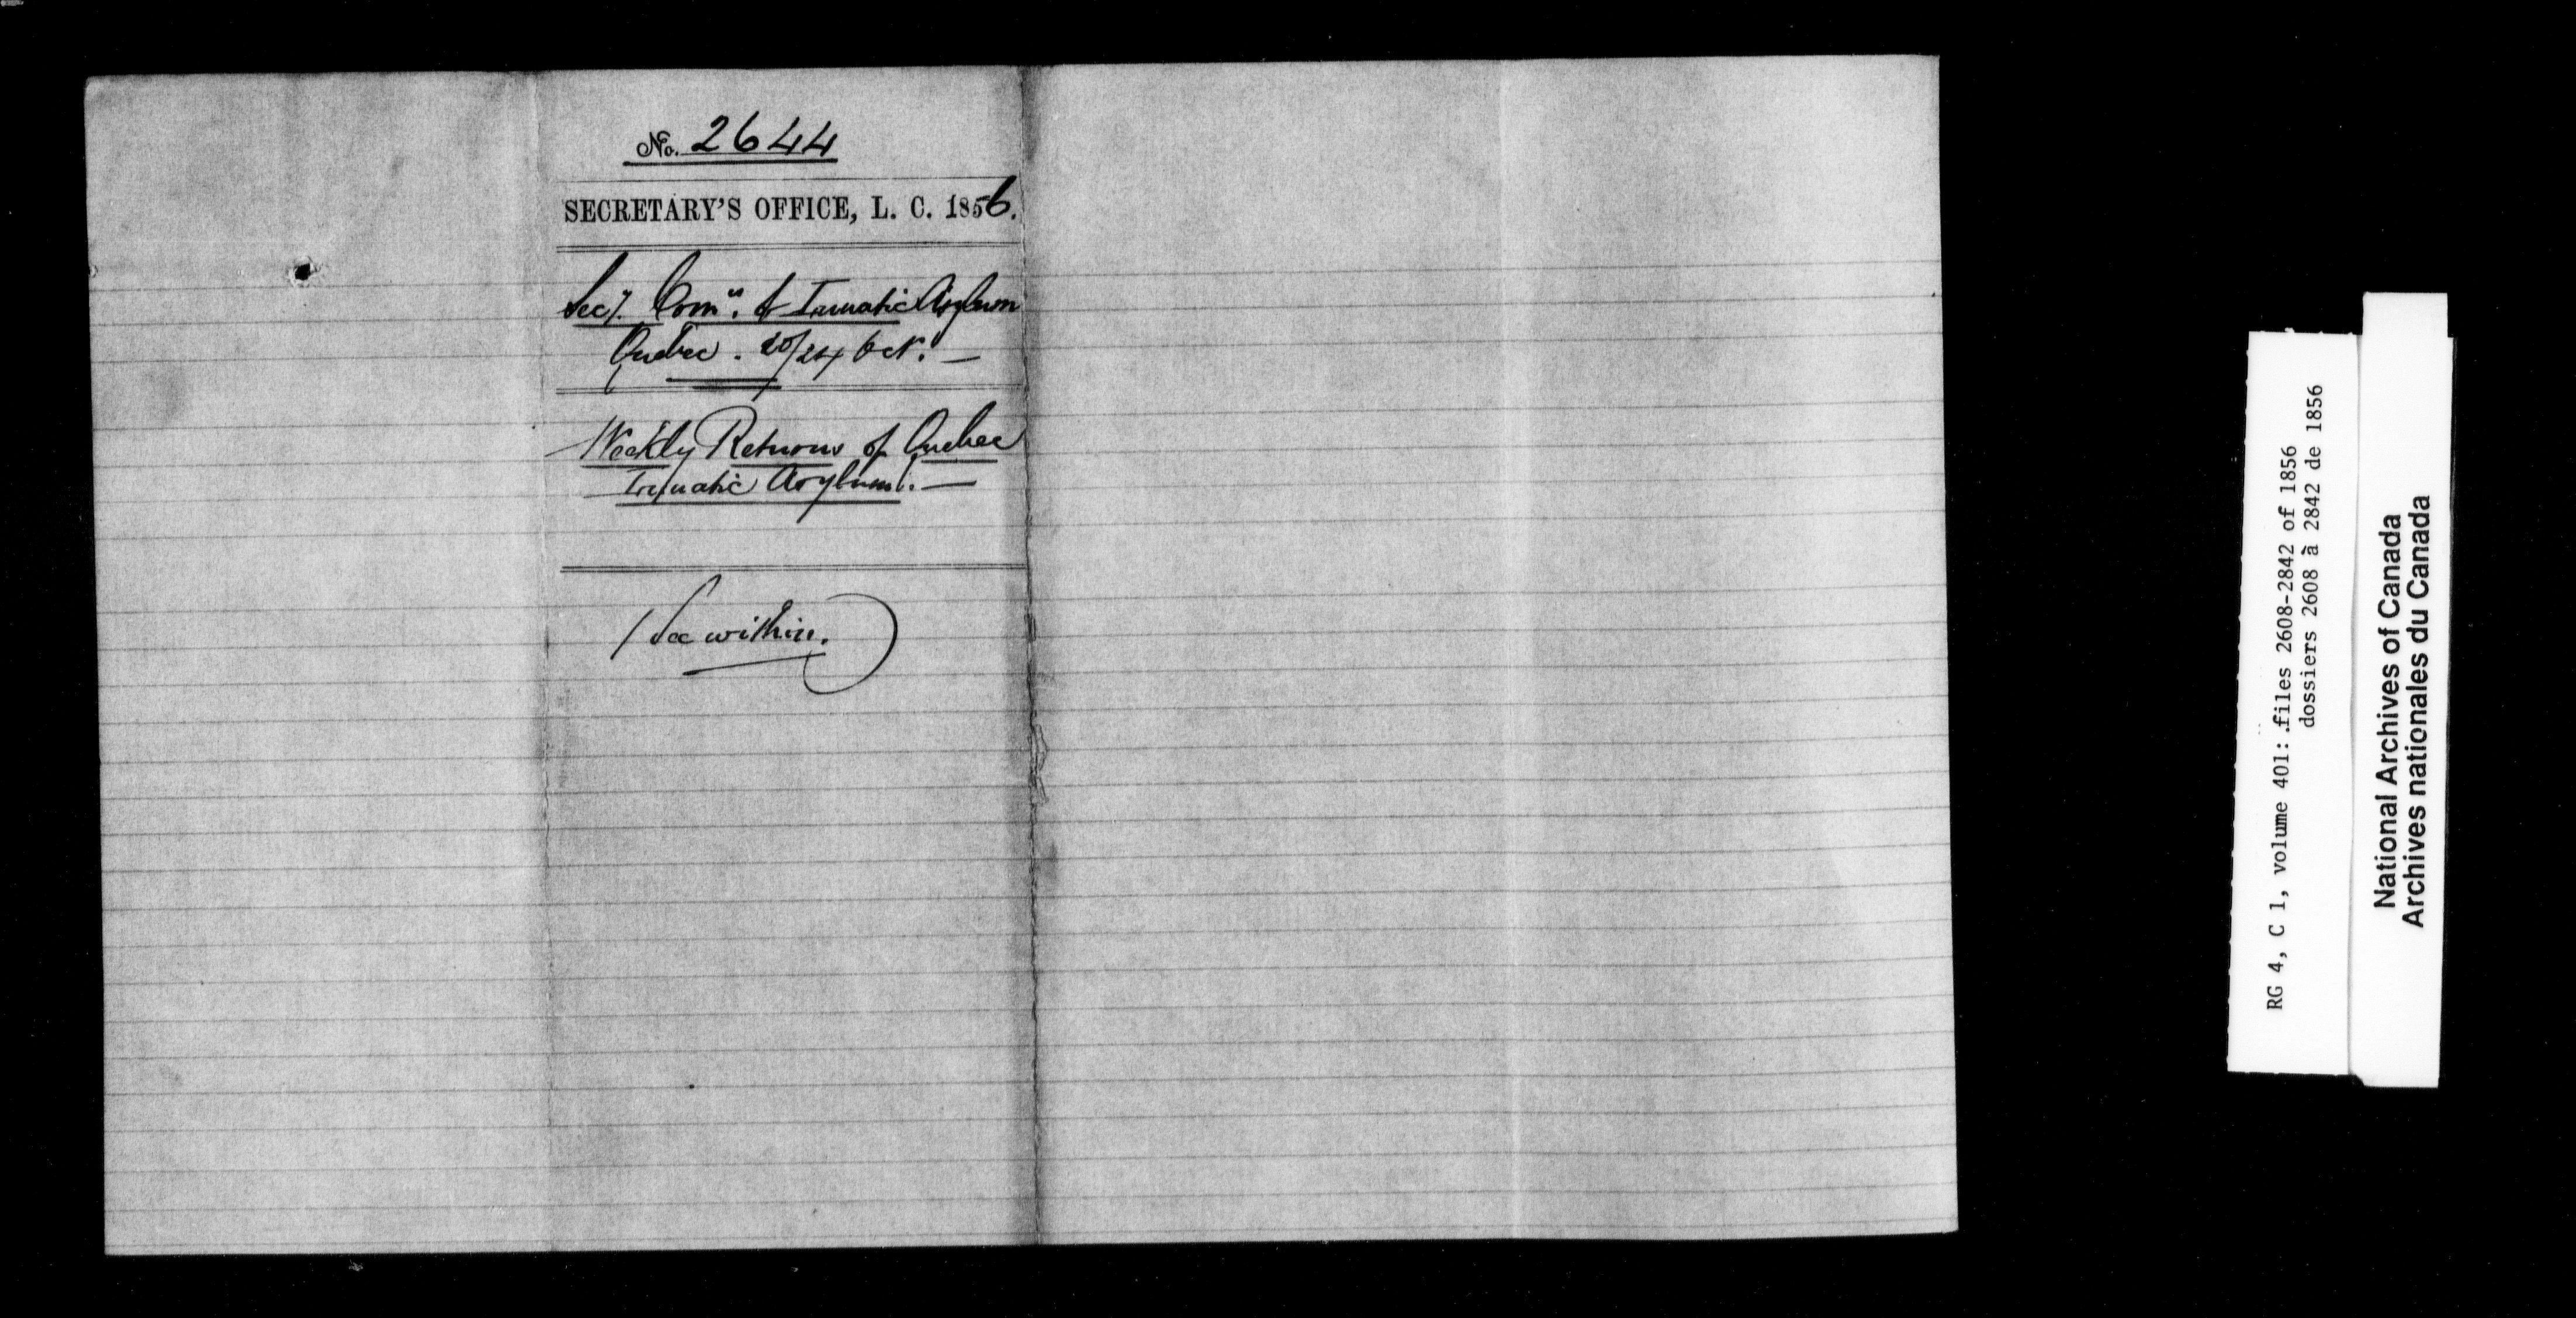 No. 2644
SECRETARY'S OFFICE, L. C. 1856.
Secy. Comrs. Lunatic Asylum
Quebec. 20/24 Oct. —
Weekly Returns of Quebec
Lunatic Asylum. —
(See within.)
RG 4, C 1, volume 401: files 2608-2842 of 1856
dossiers 2608 à 2842 de 1856
National Archives of Canada
Archives nationales du Canada